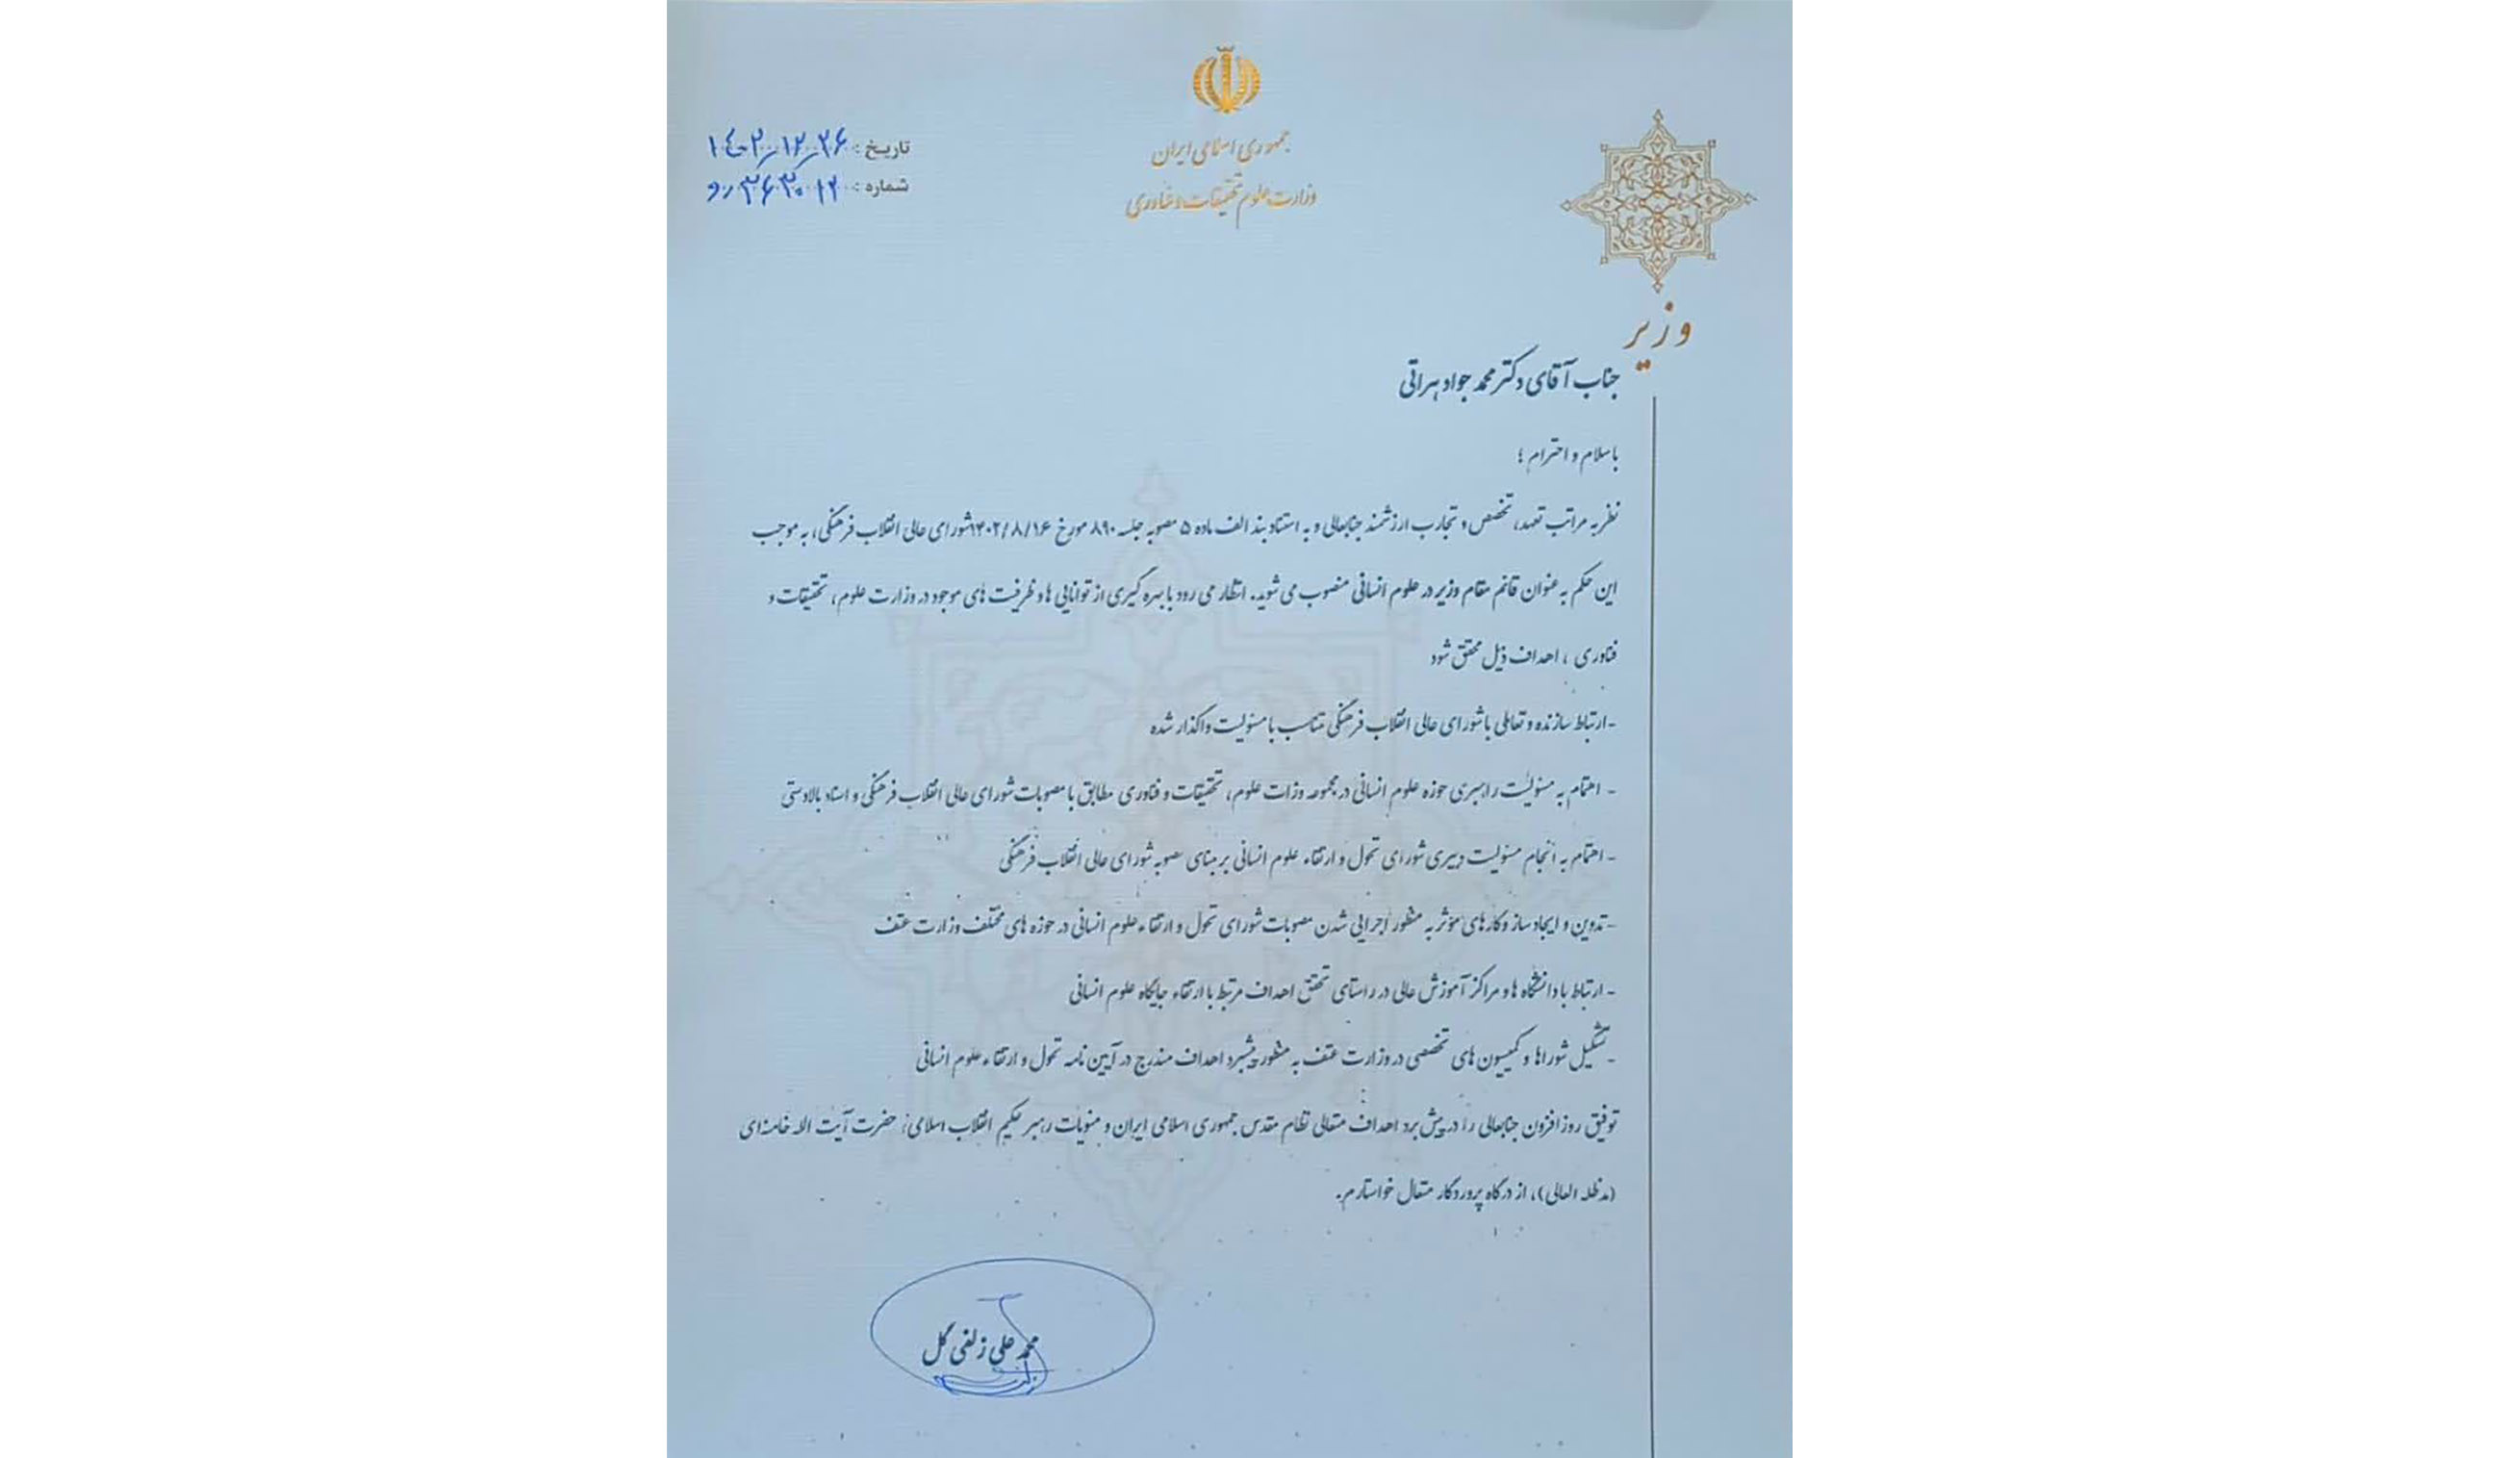 جمهوری اسلامی ایران
وزارت علوم تحقیقات و فناوری
تاریخ : ۱۴۰۲/۱۲/۲۶
شماره :
وزیر
جناب آقای دکتر محمد جواد هراتی
با سلام و احترام ؛
نظر به مراتب تعهد، تخصص و تجارب ارزشمند جنابعالی و به استناد بند الف ماده ۵ مصوبه جلسه ۸۹۰ مورخ ۱۴۰۲/۸/۱۶شورای عالی انقلاب فرهنگی، به موجب
این حکم به عنوان قائم مقام وزیر در علوم انسانی منصوب می شوید. انتظار می رود با بهره گیری از توانایی ها و ظرفیت های موجود در وزارت علوم، تحقیقات و
فناوری ، اهداف ذیل محقق شود
-ارتباط سازنده و تعاملی با شورای عالی انقلاب فرهنگی متناسب با مسئولیت واگذار شده
- اهتمام به مسئولیت راهبری حوزه علوم انسانی در مجموعه وزات علوم، تحقیقات و فناوری مطابق با مصوبات شورای عالی انقلاب فرهنگی و اسناد بالادستی
- اهتمام به انجام مسئولیت دبیری شورای تحول و ارتقاء علوم انسانی بر مبنای مصوبه شورای عالی انقلاب فرهنگی
- تدوین و ایجاد ساز و کارهای مؤثر به منظور اجرایی شدن مصوبات شورای تحول و ارتقاء علوم انسانی در حوزه های مختلف وزارت عتف
- ارتباط با دانشگاه ها و مراکز آموزش عالی در راستای تحقق اهداف مرتبط با ارتقاء جایگاه علوم انسانی
- تشکیل شوراها و کمیسیون های تخصصی در وزارت عتف به منظور پیشبرد اهداف مندرج در آیین نامه تحول و ارتقاء علوم انسانی
توفیق روزافزون جنابعالی را در پیش برد اهداف متعالی نظام مقدس جمهوری اسلامی ایران و منویات رهبر حکیم انقلاب اسلامی، حضرت آیت الله خامنه‌ای
(مدظله العالی)، از درگاه پروردگار متعال خواستارم.
محمد علی زلفی گل